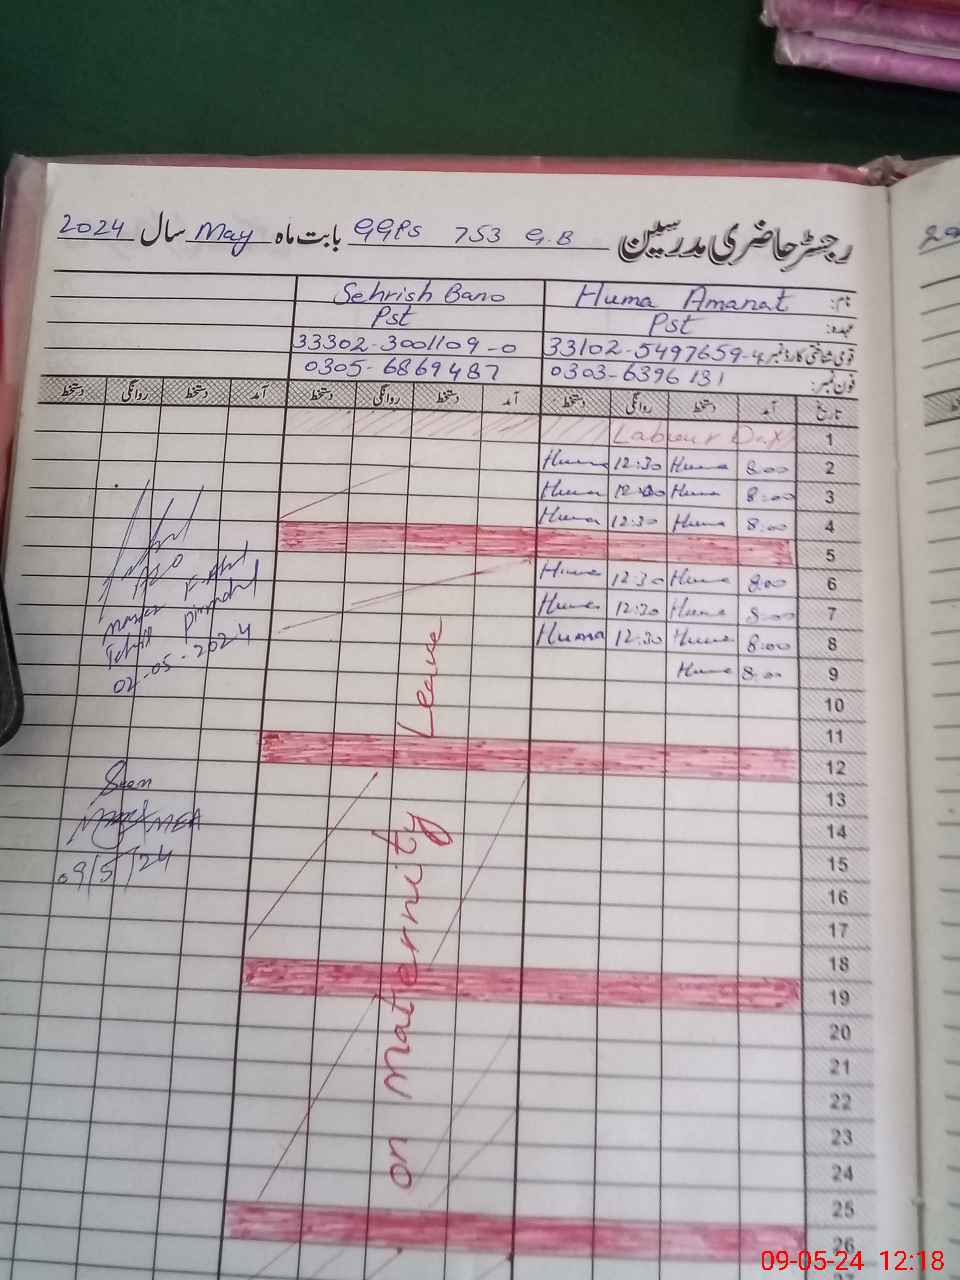 رجسٹر حاضری مدرسین GGPS 753 G.B بابت ماہ May سال 2024
نام: Huma Amanat Sehrish Bano
عہدہ: Pst Pst
قومی شناختی کارڈ نمبر 33102-5497659-4 33302-3001109-0
فون نمبر: 0303-6396131 0305-6869487
تاریخ آمد دستخط روانگی دستخط آمد دستخط روانگی دستخط آمد دستخط روانگی دستخط
1 Labour Day
2 8:00 Huma 12:30 Huma
3 8:00 Huma 12:00 Huma
4 8:00 Huma 12:30 Huma
5
6 8:00 Huma 12:30 Huma
7 8:00 Huma 12:30 Huma
8 8:00 Huma 12:30 Huma
9 8:00 Huma
10
11
12
13
14
15
16
17
18
19
20
21
22
23
24
25
26
on Maternity Leave
02-05-2024
Seen
MEA
09/5/24
09-05-24 12:18